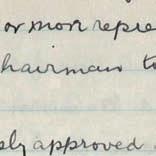 or more repre
hairman to
ly approved